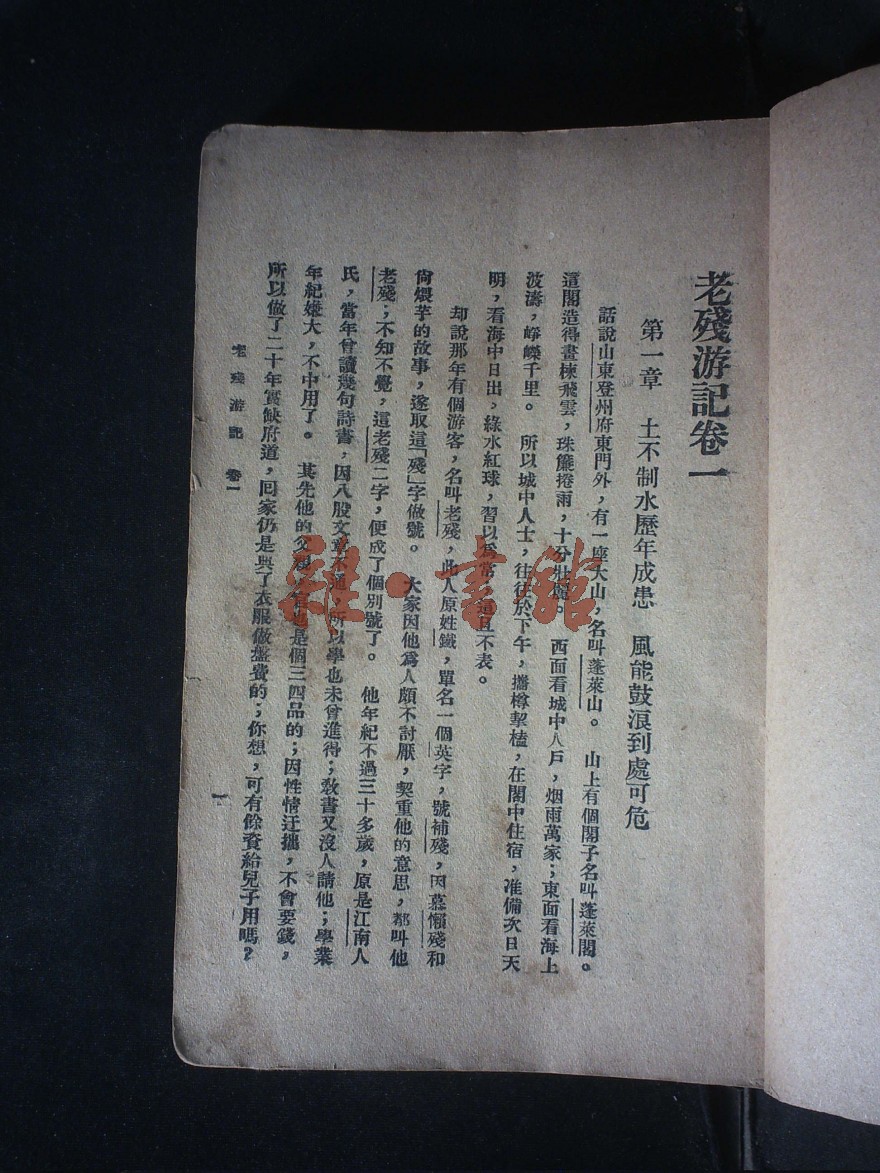 老殘游記卷一
第一章 土不制水歷年成患 風能鼓浪到處可危
話說山東登州府東門外，有一座大山，名叫蓬萊山。 山上有個閣子名叫蓬萊閣。
這閣造得畫棟飛雲，珠簾捲雨，十分壯麗。 西面看城中人戶，烟雨萬家；東面看海上
波濤，崢嶸千里。 所以城中人士，往往於下午，攜樽挈榼，在閣中住宿，准備次日天
明，看海中日出，綠水紅球，習以爲常，這且不表。
却說那年有個游客，名叫老殘，此人原姓鐵，單名一個英字，號補殘，因慕懶殘和
尙煨芋的故事，遂取這「殘」字做號。 大家因他爲人頗不討厭，契重他的意思，都叫他
老殘；不知不覺，這老殘二字，便成了個別號了。 他年紀不過三十多歲，原是江南人
氏，當年曾讀幾句詩書，因八股文章不通，所以學也未曾進得；敎書又沒人請他；學業
年紀嫌大，不中用了。 其先他的父親，官也是個三四品的；因性情迂拙，不會要錢，
所以做了二十年實缺府道，回家仍是與了衣服做盤費的；你想，可有餘資給兒子用嗎？
老殘游記 卷一
一
雜·書館